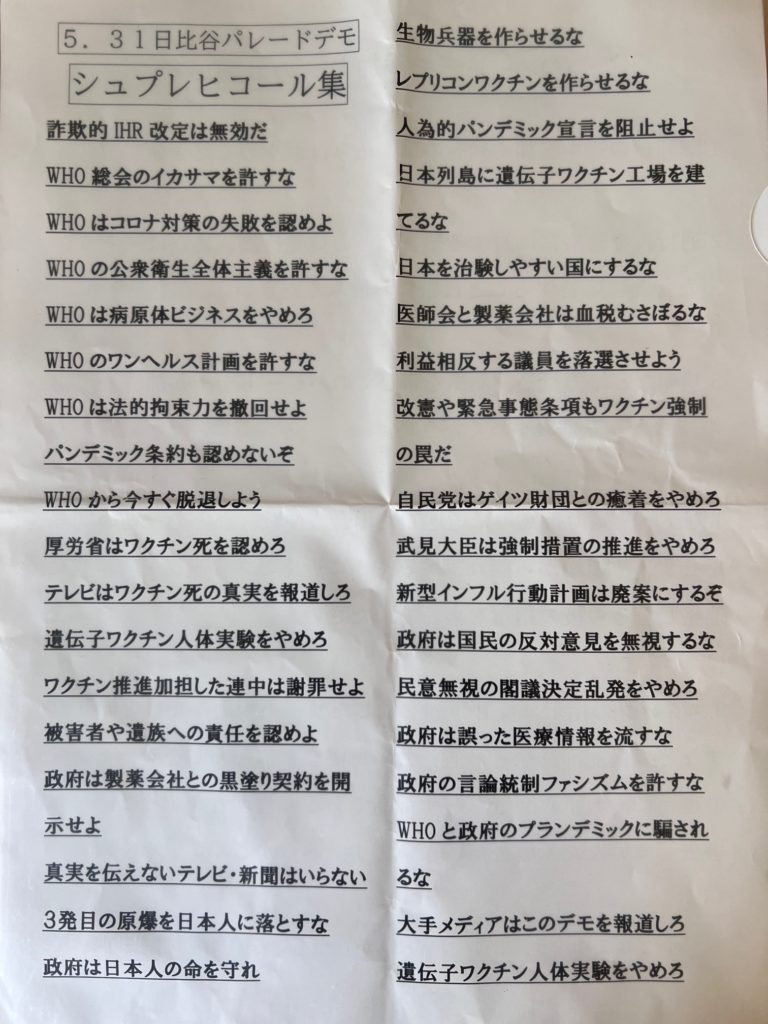 5．31日比谷パレードデモ
シュプレヒコール集
詐欺的 IHR 改定は無効だ
WHO 総会のイカサマを許すな
WHO はコロナ対策の失敗を認めよ
WHO の公衆衛生全体主義を許すな
WHO は病原体ビジネスをやめろ
WHO のワンヘルス計画を許すな
WHO は法的拘束力を撤回せよ
パンデミック条約も認めないぞ
WHO から今すぐ脱退しよう
厚労省はワクチン死を認めろ
テレビはワクチン死の真実を報道しろ
遺伝子ワクチン人体実験をやめろ
ワクチン推進加担した連中は謝罪せよ
被害者や遺族への責任を認めよ
政府は製薬会社との黒塗り契約を開
示せよ
真実を伝えないテレビ・新聞はいらない
3発目の原爆を日本人に落とすな
政府は日本人の命を守れ
生物兵器を作らせるな
レプリコンワクチンを作らせるな
人為的パンデミック宣言を阻止せよ
日本列島に遺伝子ワクチン工場を建
てるな
日本を治験しやすい国にするな
医師会と製薬会社は血税むさぼるな
利益相反する議員を落選させよう
改憲や緊急事態条項もワクチン強制
の罠だ
自民党はゲイツ財団との癒着をやめろ
武見大臣は強制措置の推進をやめろ
新型インフル行動計画は廃案にするぞ
政府は国民の反対意見を無視するな
民意無視の閣議決定乱発をやめろ
政府は誤った医療情報を流すな
政府の言論統制ファシズムを許すな
WHO と政府のプランデミックに騙され
るな
大手メディアはこのデモを報道しろ
遺伝子ワクチン人体実験をやめろ